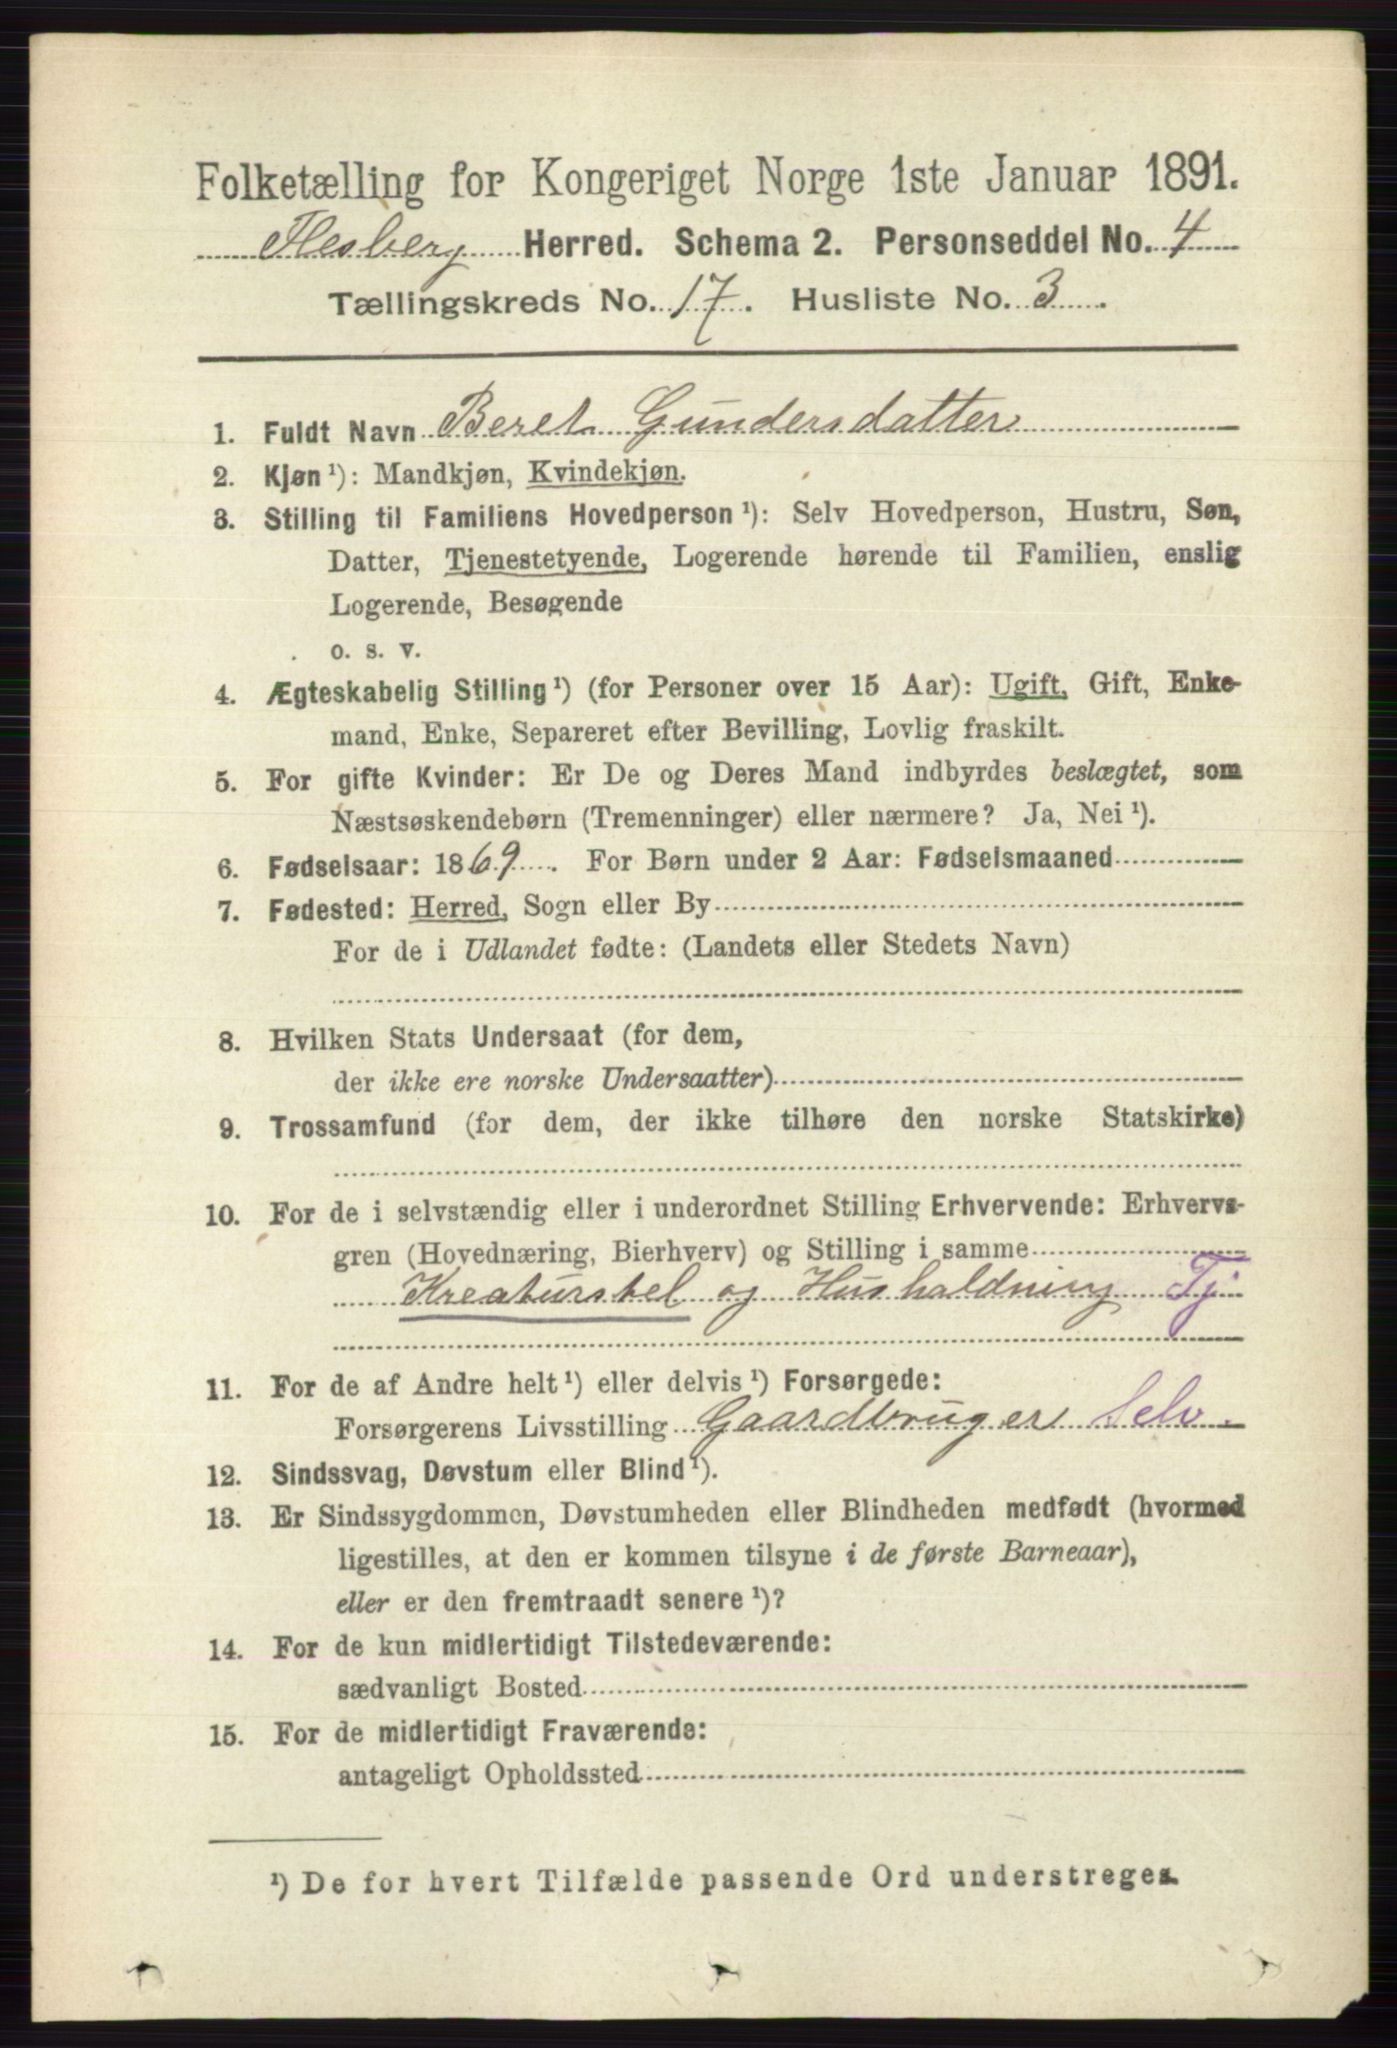 Folketælling for Kongeriget Norge 1ste Januar 1891.
Flesberg Herred. Schema 2. Personseddel No. 4
Tællingskreds No. 17. Husliste No. 3.
1. Fuldt Navn Beret Gundersdatter
2. Kjøn ¹): Mandkjøn, Kvindekjøn.
3. Stilling til Familiens Hovedperson ¹): Selv Hovedperson, Hustru, Søn,
Datter, Tjenestetyende, Logerende hørende til Familien, enslig
Logerende, Besøgende
o. s. v.
4. Ægteskabelig Stilling ¹) (for Personer over 15 Aar): Ugift, Gift, Enke-
mand, Enke, Separeret efter Bevilling, Lovlig fraskilt.
5. For gifte Kvinder: Er De og Deres Mand indbyrdes beslægtet, som
Næstsøskendebørn (Tremenninger) eller nærmere? Ja, Nei ¹).
6. Fødselsaar: 1869. For Børn under 2 Aar: Fødselsmaaned
7. Fødested: Herred, Sogn eller By
For de i Udlandet fødte: (Landets eller Stedets Navn)
8. Hvilken Stats Undersaat (for dem,
der ikke ere norske Undersaatter)
9. Trossamfund (for dem, der ikke tilhøre den norske Statskirke)
10. For de i selvstændig eller i underordnet Stilling Erhvervende: Erhvervs-
gren (Hovednæring, Bierhverv) og Stilling i samme
Kreaturstel og Husholdning Tj
11. For de af Andre helt ¹) eller delvis ¹) Forsørgede:
Forsørgerens Livsstilling Gaardbruger Selv.
12. Sindssvag, Døvstum eller Blind ¹).
13. Er Sindssygdommen, Døvstumheden eller Blindheden medfødt (hvormed
ligestilles, at den er kommen tilsyne i de første Barneaar),
eller er den fremtraadt senere ¹)?
14. For de kun midlertidigt Tilstedeværende:
sædvanligt Bosted
15. For de midlertidigt Fraværende:
antageligt Opholdssted
¹) De for hvert Tilfælde passende Ord understreges.